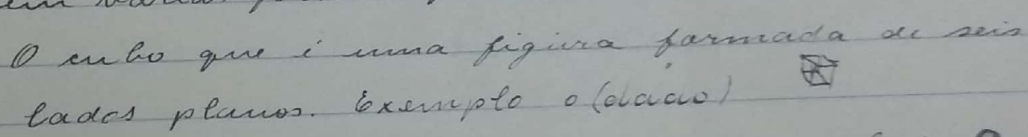 O cubo que é uma figura formada de seis
lados planos. Exemplo o (dado)